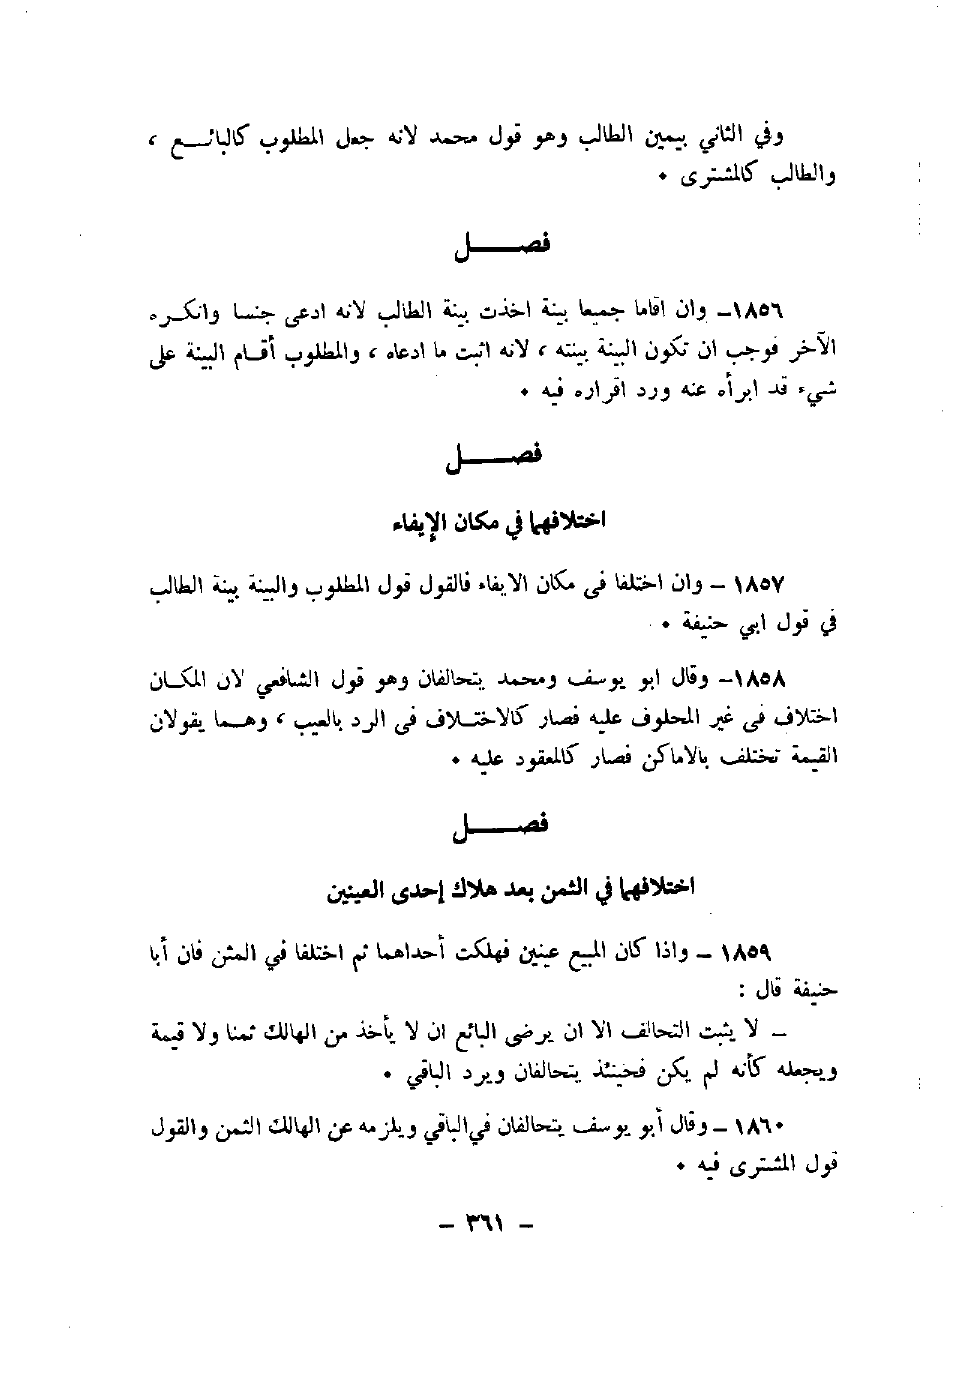 وفي الثاني بيمين الطالب وهو قول محمد لانه جعل المطلوب كالبائـــع ،
والطالب كالمشترى .
فصـــــل
١٨٥٦ـ وان اقاما جميعا بينة اخذت بينة الطالب لانه ادعى جنسا وانكـره
الآخر فوجب ان تكون البينة بينته ، لانه اثبت ما ادعاه ، والمطلوب أقـام البينة على
شيء قد ابرأه عنه ورد اقراره فيه .
فصـــــل
اختلافهما في مكان الإيفاء
١٨٥٧ ـ وان اختلفا فى مكان الايفاء فالقول قول المطلوب والبينة بينة الطالب
في قول ابي حنيفة .
١٨٥٨ـ وقال ابو يوسف ومحمد يتحالفان وهو قول الشافعي لان المكـان
اختلاف فى غير المحلوف عليه فصار كالاختـلاف فى الرد بالعيب ، وهـما يقولان
القيمة تختلف بالاماكن فصار كالمعقود عليه .
فصـــــل
اختلافهما في الثمن بعد هلاك إحدى العينين
١٨٥٩ ـ واذا كان المبيع عينين فهلكت أحداهما ثم اختلفا في المثن فان أبا
حنيفة قال :
ـ لا يثبت التحالف الا ان يرضى البائع ان لا يأخذ من الهالك ثمنا ولا قيمة
ويجعله كأنه لم يكن فحينئذ يتحالفان ويرد الباقي .
١٨٦٠ ـ وقال أبو يوسف يتحالفان في الباقي ويلزمه عن الهالك الثمن والقول
قول المشترى فيه .
ـ ٣٦١ ـ